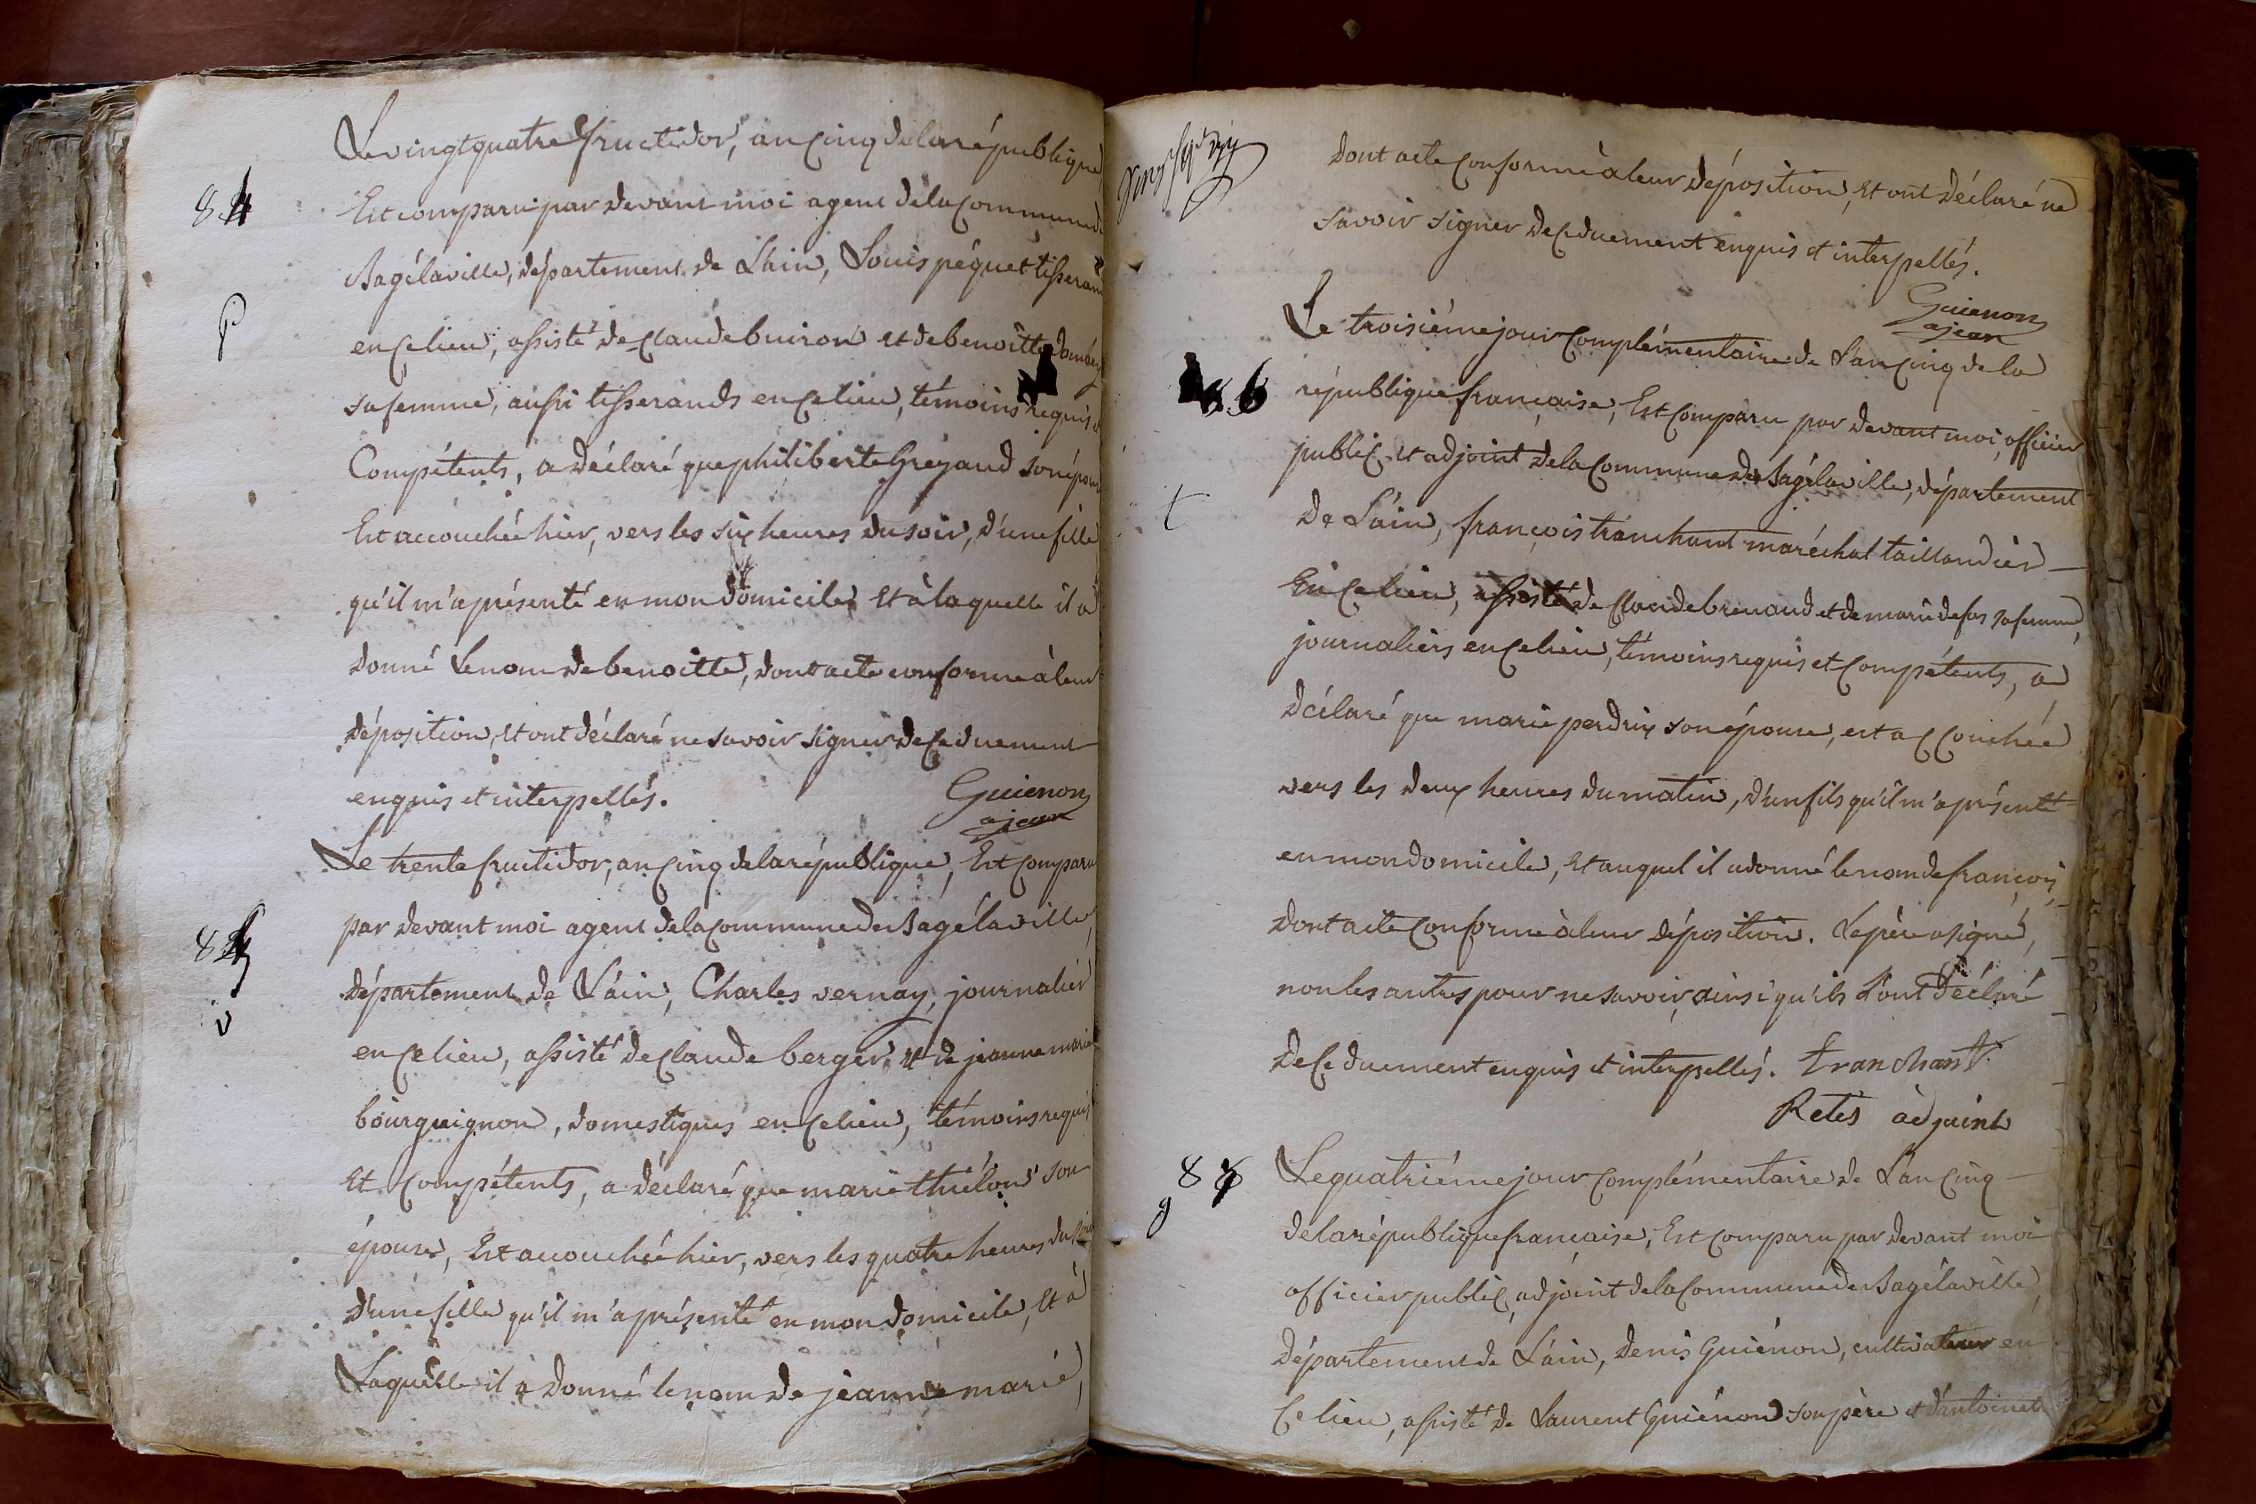 Le vingt quatre fructidor, an cinq de la république
84
Est comparu par devant moi agent de la commune de
Bagélaville, département de Lain, Louis péquet tisserand
p
en ce lieu, assisté de claude buiron et de benoitte
sa femme, aussi tisserands en ce lieu, témoins requis et
Compétents, a déclaré que philiberte Greyaud son épouse
Est accouchée hier, vers les six heures du soir, d'une fille
qu'il m'a présenté en mon domicile, Et à laquelle il a
donné Le nom de benoitte, dont acte conforme à leur
déposition, et ont déclaré ne savoir signer de ce duement
enquis et interpellés.
Guienon
ajean
Le trente fructidor, an cinq de la république, Est comparu
par devant moi agent de la commune de Bagélaville,
8
département de Lain, Charles vernay, journalier
v
en ce lieu, assisté de Claude berger et de jeanne marie
bourguignon, domestiques en ce lieu, témoins requis
Et Compétents, a déclaré que marie thiélon son
épouse, Est accouchée hier, vers les quatre heures du soir
d'une fille qu'il m'a présenté en mon domicile, Et à
Laquelle il a donné le nom de jeanne marie,
dont acte conforme à leur déposition, Et ont déclaré ne
savoir signer de ce duement enquis et interpellés.
Guienon
ajean
Le troisiéme jour complémentaire de L'an cinq de la
6
république française, Est comparu par devant moi, officier
public et adjoint de la commune de Bagélaville, département
t
de Lain, françois tranchant maréchal taillandier
En ce lieu, assisté de Claude brenaud et de marie defas sa femme,
journaliers en ce lieu, témoins requis et compétents, a
déclaré que marie perdrix son épouse, est accouchée
vers les deux heures du matin, d'un fils qu'il m'a présenté
en mon domicile, Et auquel il a donné le nom de françois,
dont acte conforme à leur déposition. Le père a signé,
non les autres pour ne savoir, ainsi qu'ils L'ont déclaré
de ce duement enquis et interpellés. tranchant
Retes adjoint
8
g
Le quatriéme jour complémentaire de L'an cinq
de la république française, Est comparu par devant moi
officier public, adjoint de la commune de Bagélaville,
département de Lain, denis Guiénon, cultivateur en
Ce lieu, assisté de Laurent Guiénon son père et d'antoinette